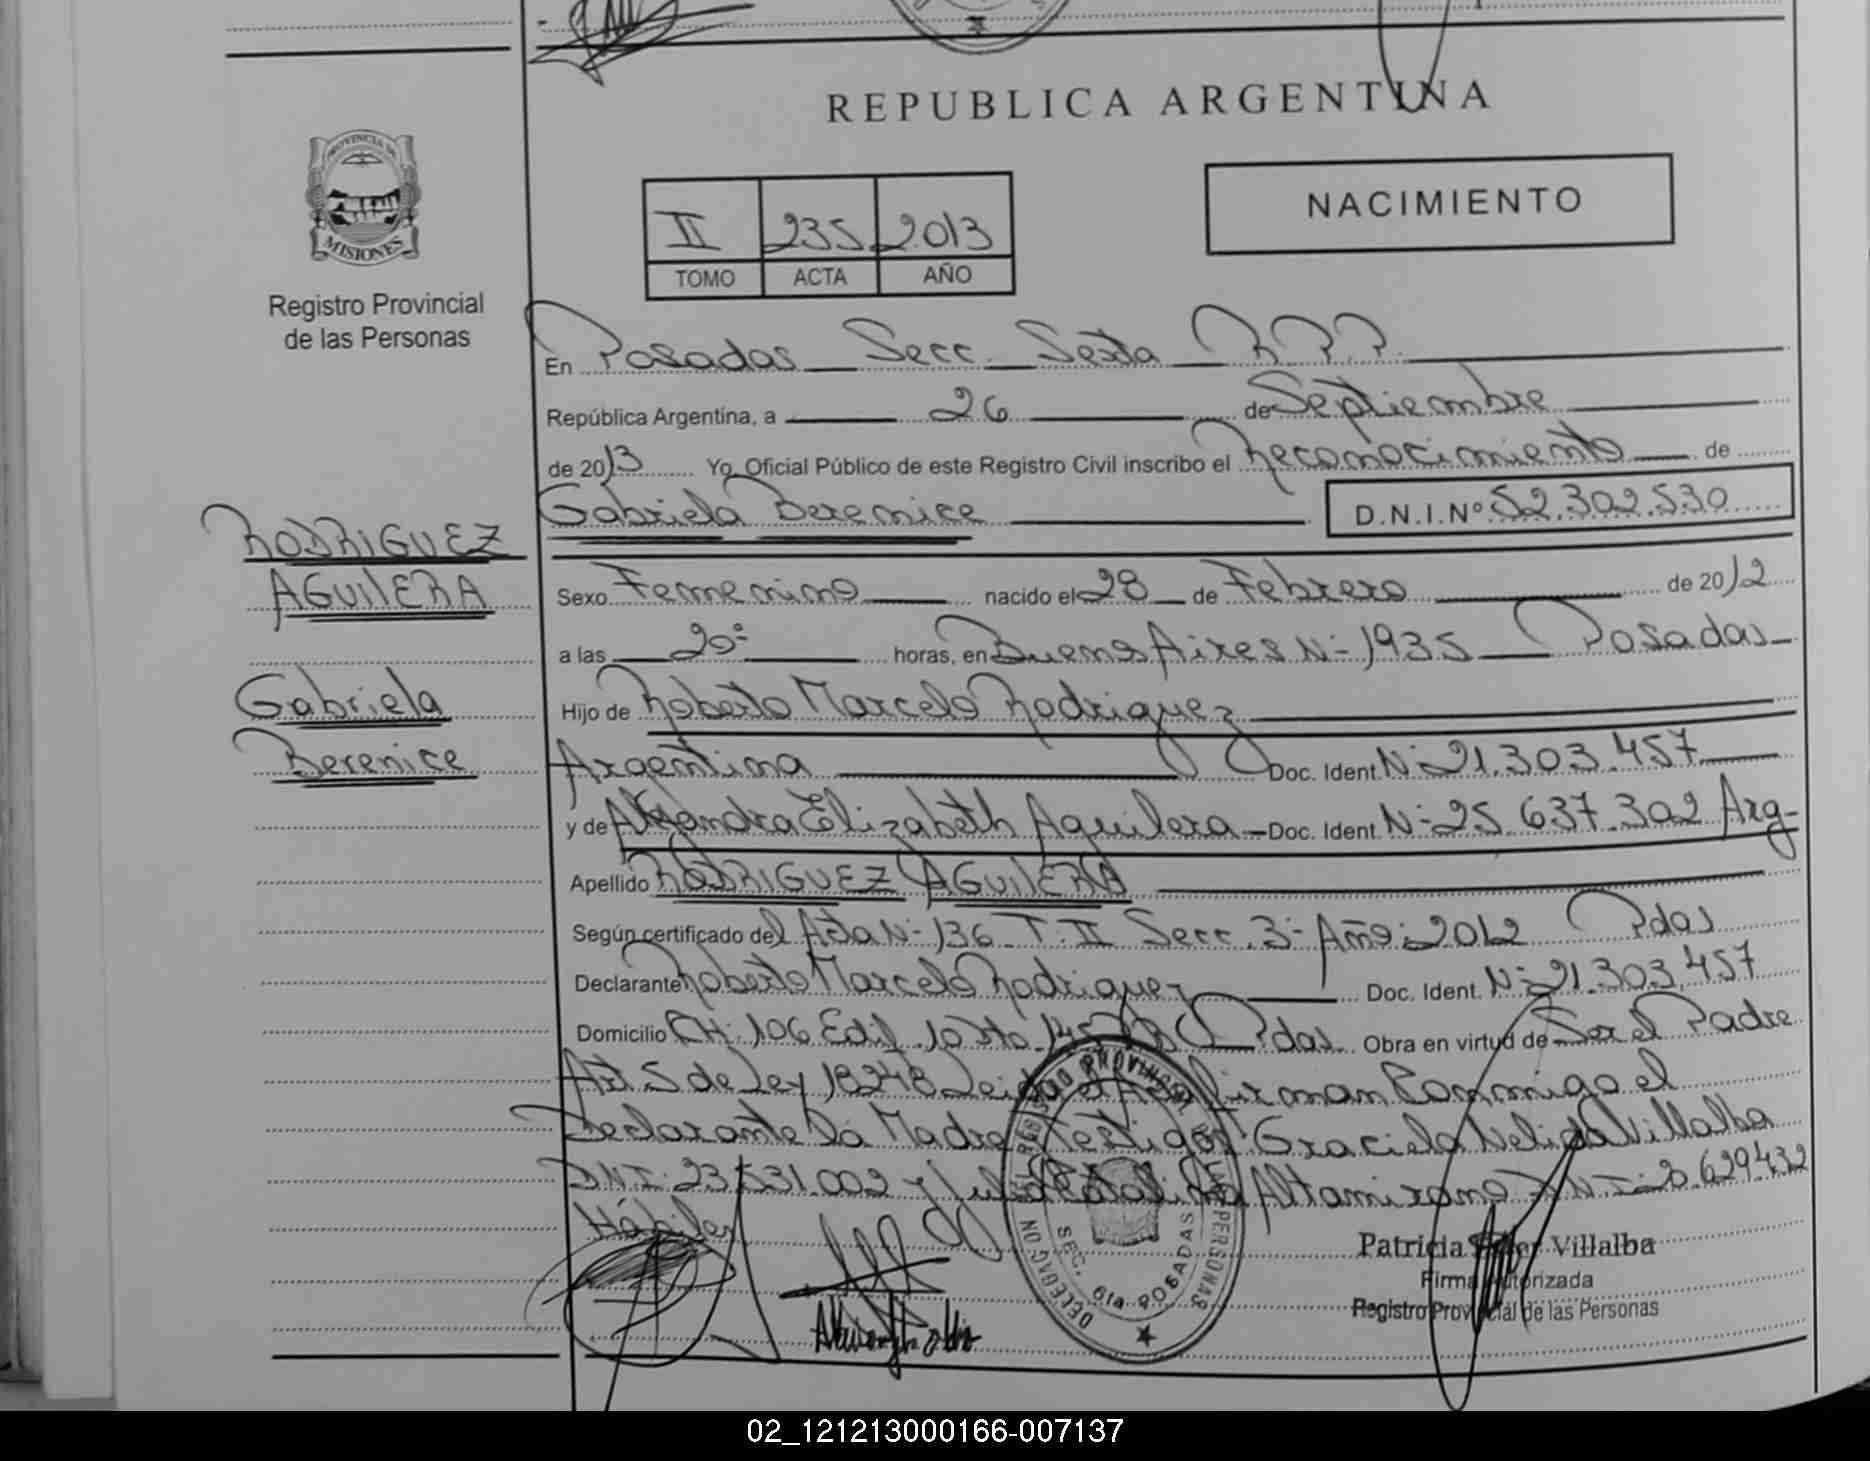 REPUBLICA ARGENTINA
PROVINCIA DE
MISIONES
Registro Provincial
de las Personas
II 235 2013
TOMO ACTA AÑO
NACIMIENTO
En Posadas Secc. Sexta R.P.P.
República Argentina, a 26 de Septiembre
de 2013 Yo, Oficial Público de este Registro Civil inscribo el Reconocimiento de
Gabriela Berenice D.N.I.Nº 52.302.530
RODRIGUEZ
AGUILERA
Gabriela
Berenice
Sexo Femenino nacido el 28 de Febrero de 2012
a las 20: horas, en Buenos Aires N- 1935 Posadas
Hijo de Roberto Marcelo Rodriguez
Argentina Doc. Ident. N- 21.303.457
y de Alejandra Elizabeth Aguilera Doc. Ident. N- 25.637.302 Arg-
Apellido RODRIGUEZ AGUILERA
Según certificado del Acta N- 136 T. II Secc. 3- Año: 2012 Pdas
Declarante Roberto Marcelo Rodriguez Doc. Ident. N- 21.303.457
Domicilio CH: 106 Edif. 10 Dto. Pdas. Obra en virtud de Ser el Padre
Art. 5 de Ley 18248 Leida el Acta firman Conmigo el
Declarante la Madre Testigos: Graciela Nelida Villalba
DNI: 23.531.002 y Altamirano DNI: 20.629.432
Hábiles
DELEGACION DEL REGISTRO PROVINCIAL DE LAS PERSONAS
SEC. 6ta. POSADAS
Patricia Villalba
Firma Autorizada
Registro Provincial de las Personas
02_121213000166-007137